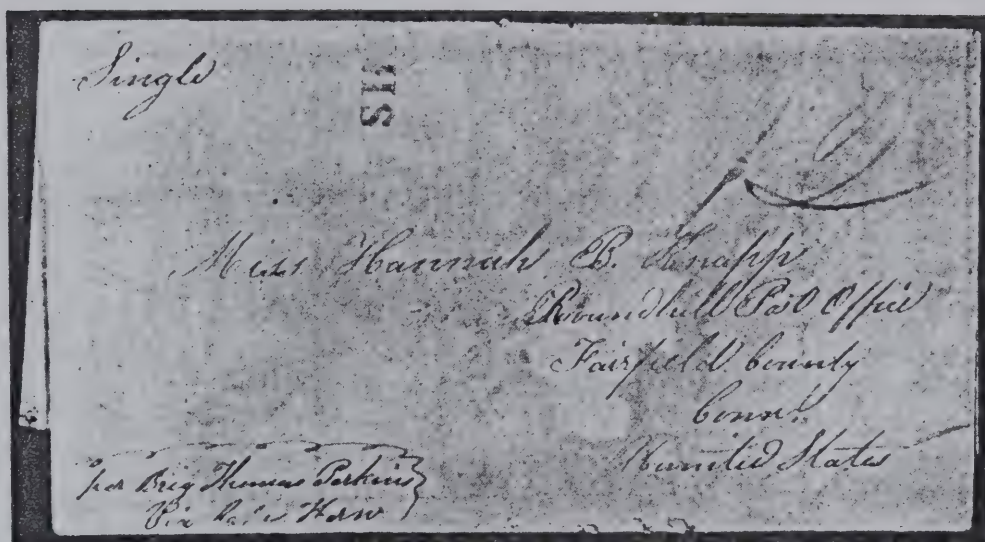 Single
Miss Hannah B. Knapp
Roundhill Post Office
Fairfield County
Conn.
United States
per Brig Thomas Perkins
Via Cape Horn